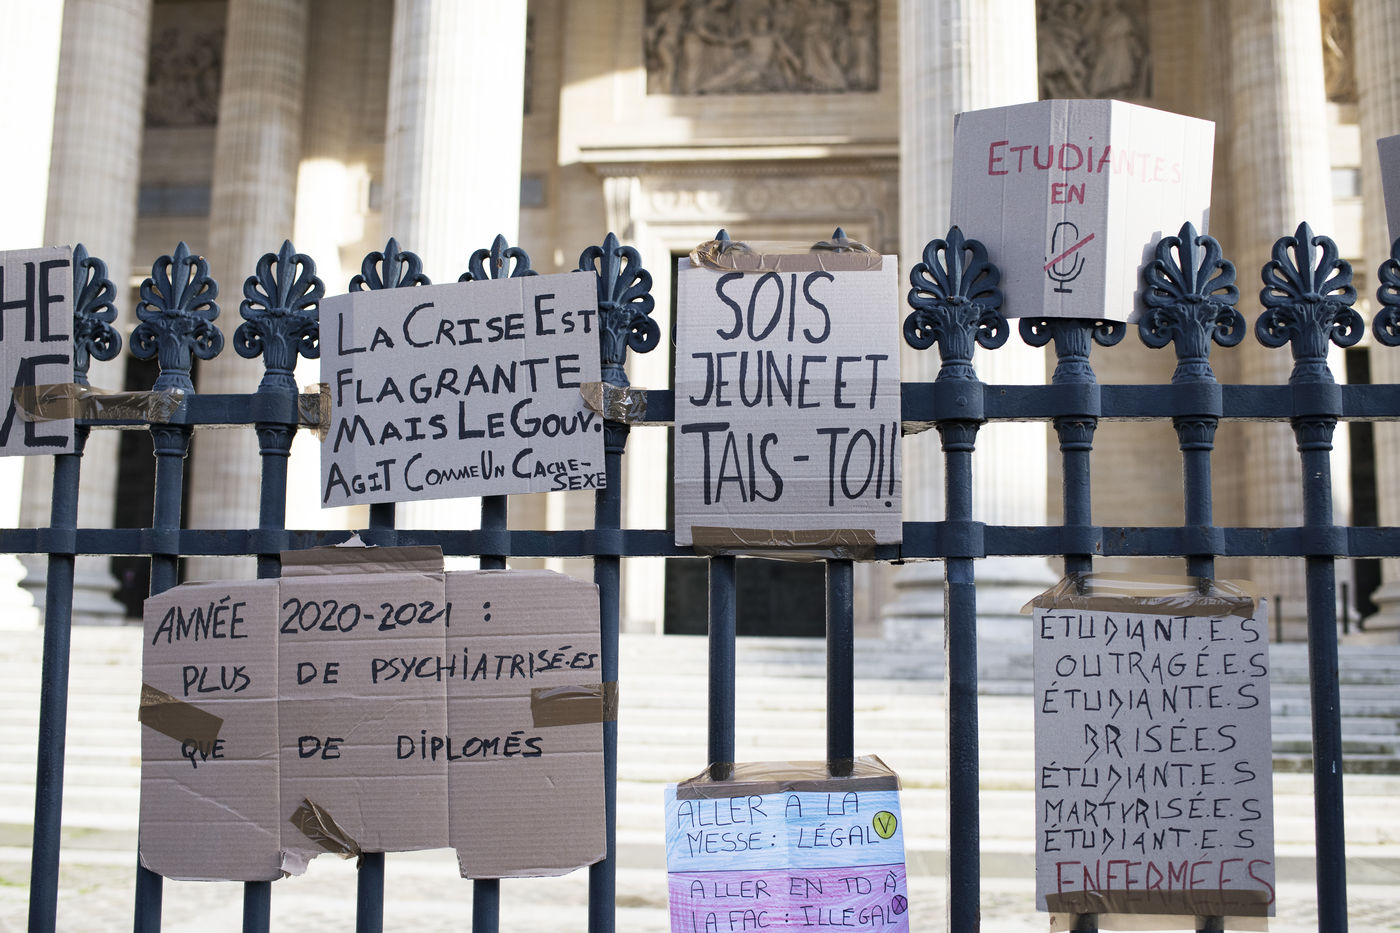 HE
VE
LA CRISE EST
FLAGRANTE
MAIS LE GOUV.
AGIT COMME UN CACHE-
SEXE
SOIS
JEUNE ET
TAIS-TOI!!
ETUDIANT.E.S
EN
ANNÉE 2020-2021 :
PLUS DE PSYCHIATRISÉ.ES
QUE DE DIPLOMÉS
ALLER A LA
MESSE : LÉGAL V
ALLER EN TD À
LA FAC : ILLEGAL X
ÉTUDIANT.E.S
OUTRAGÉ.E.S
ÉTUDIANT.E.S
BRISÉ.E.S
ÉTUDIANT.E.S
MARTYRISÉ.E.S
ÉTUDIANT.E.S
ENFERMÉ.E.S